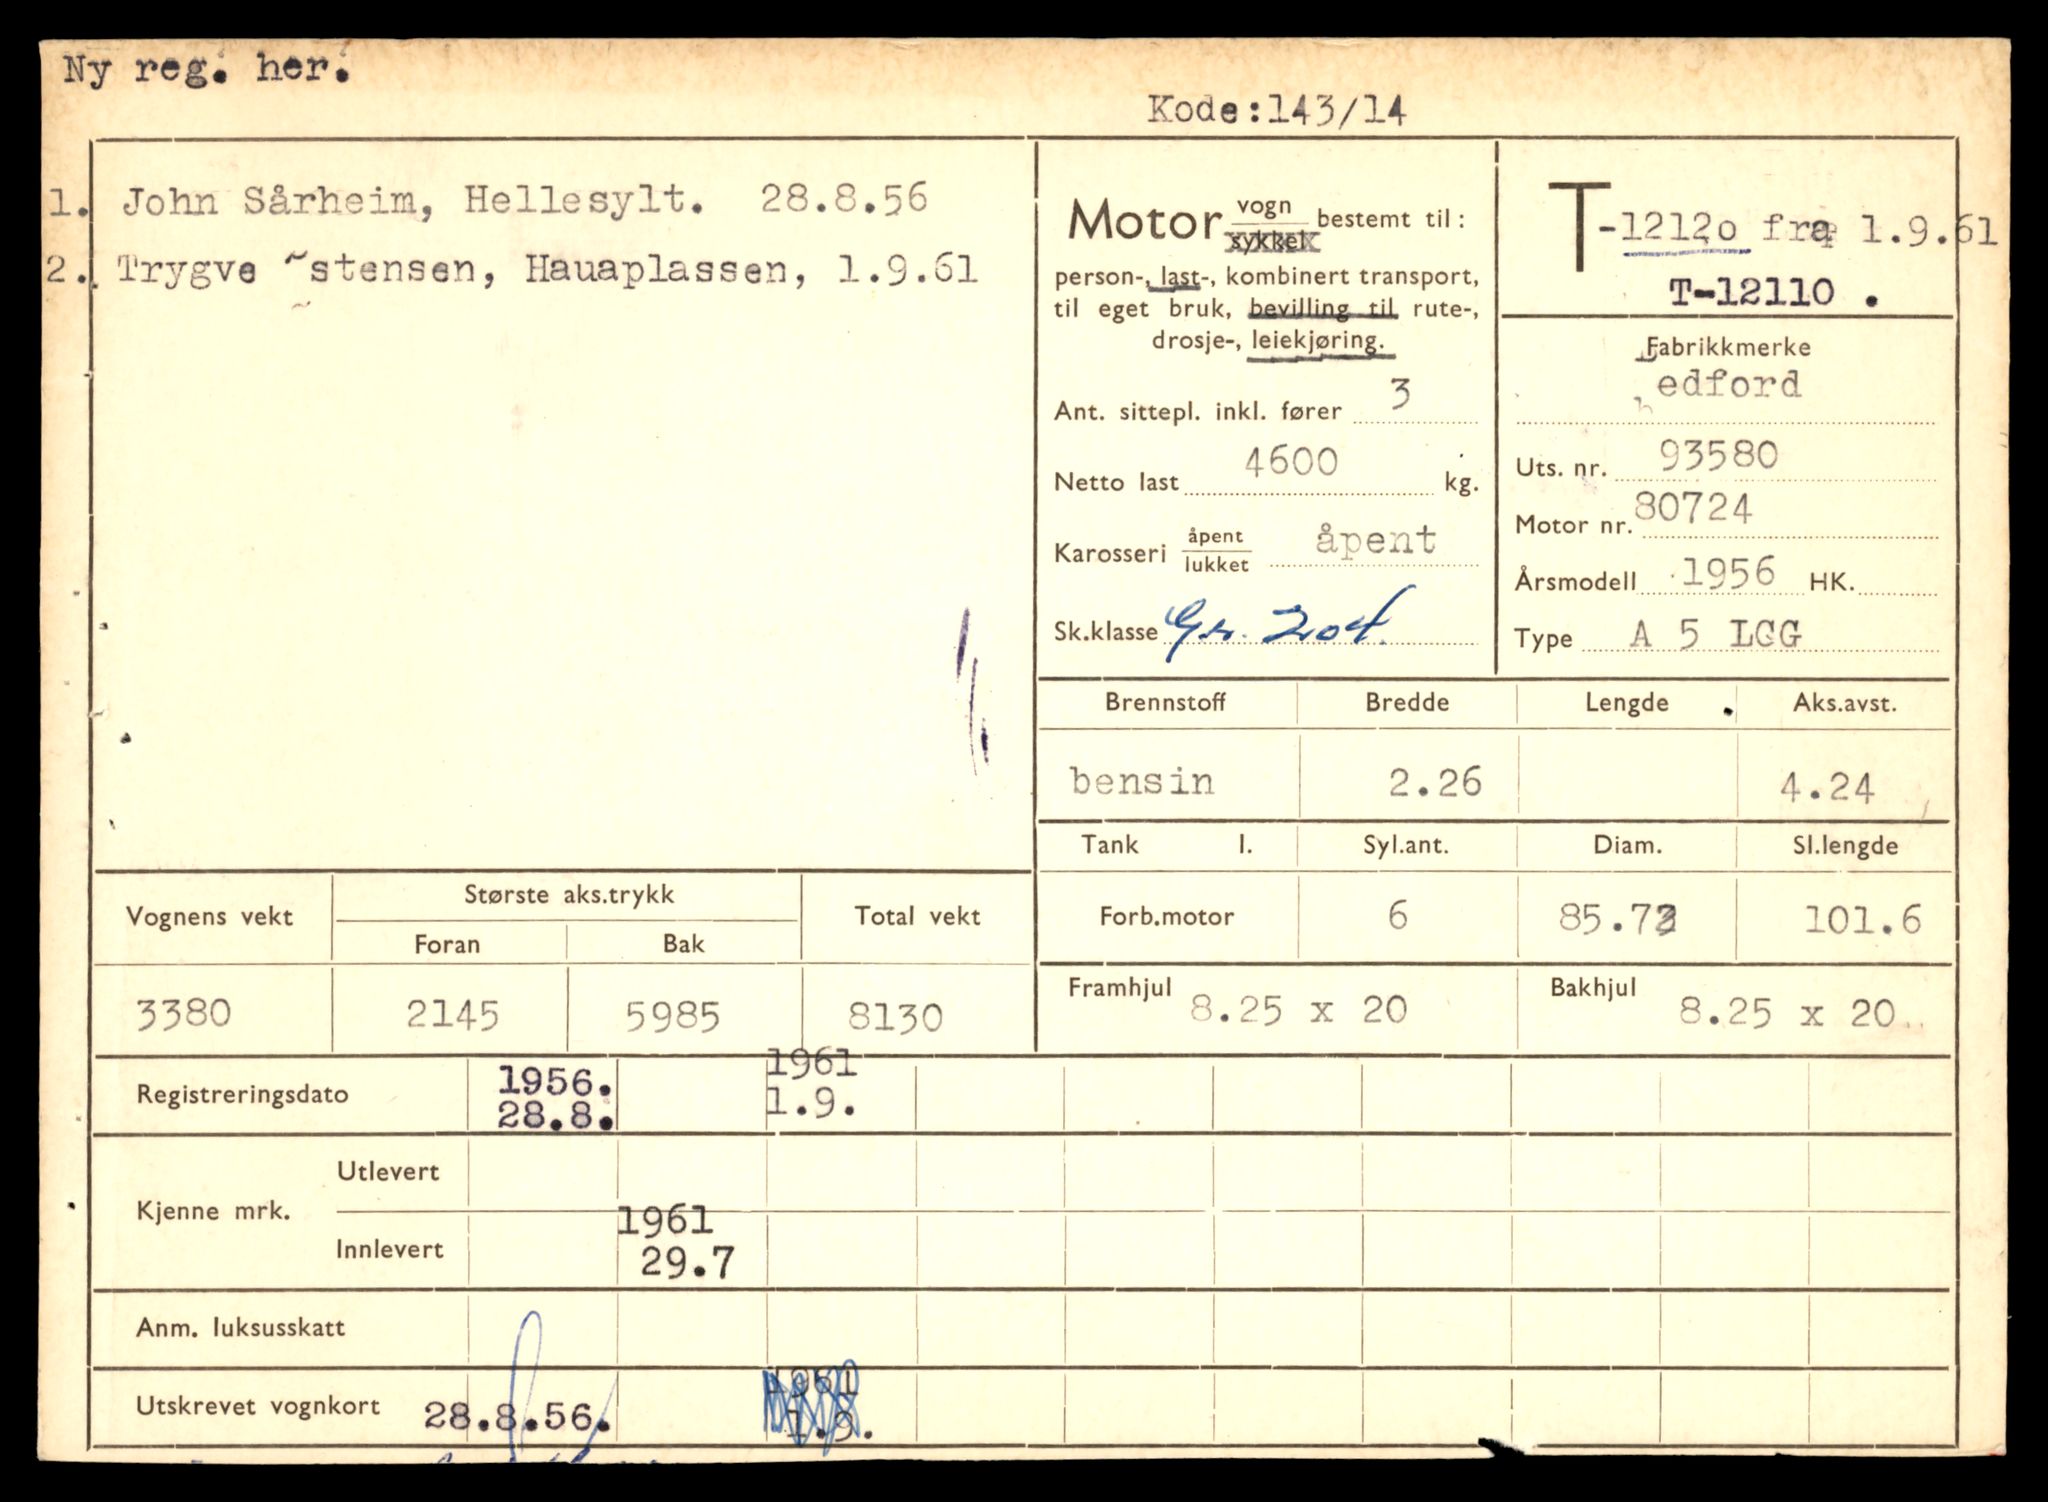 Ny reg. her.
Kode:143/14
1. John Sårheim, Hellesylt. 28.8.56
2. Trygve ~stensen, Hauaplassen, 1.9.61
Motor vogn/sykkel bestemt til:
person-, last-, kombinert transport,
til eget bruk, bevilling til rute-,
drosje-, leiekjøring.
Ant. sittepl. inkl. fører 3
Netto last 4600 kg.
Karosseri åpent/lukket åpent
Sk.klasse Gr. 204.
T-1212o fra 1.9.61
T-12110 .
Fabrikkmerke
Bedford
Uts. nr. 93580
Motor nr. 80724
Årsmodell 1956 HK.
Type A 5 LCG
Brennstoff Bredde Lengde Aks.avst.
bensin 2.26 4.24
Tank l. Syl.ant. Diam. Sl.lengde
Forb.motor 6 85.73 101.6
Framhjul 8.25 x 20 Bakhjul 8.25 x 20
Vognens vekt Største aks.trykk Total vekt
Foran Bak
3380 2145 5985 8130
Registreringsdato 1956. 28.8. 1961 1.9.
Kjenne mrk. Utlevert
Innlevert 1961 29.7
Anm. luksusskatt
Utskrevet vognkort 28.8.56. 1961 1.9.